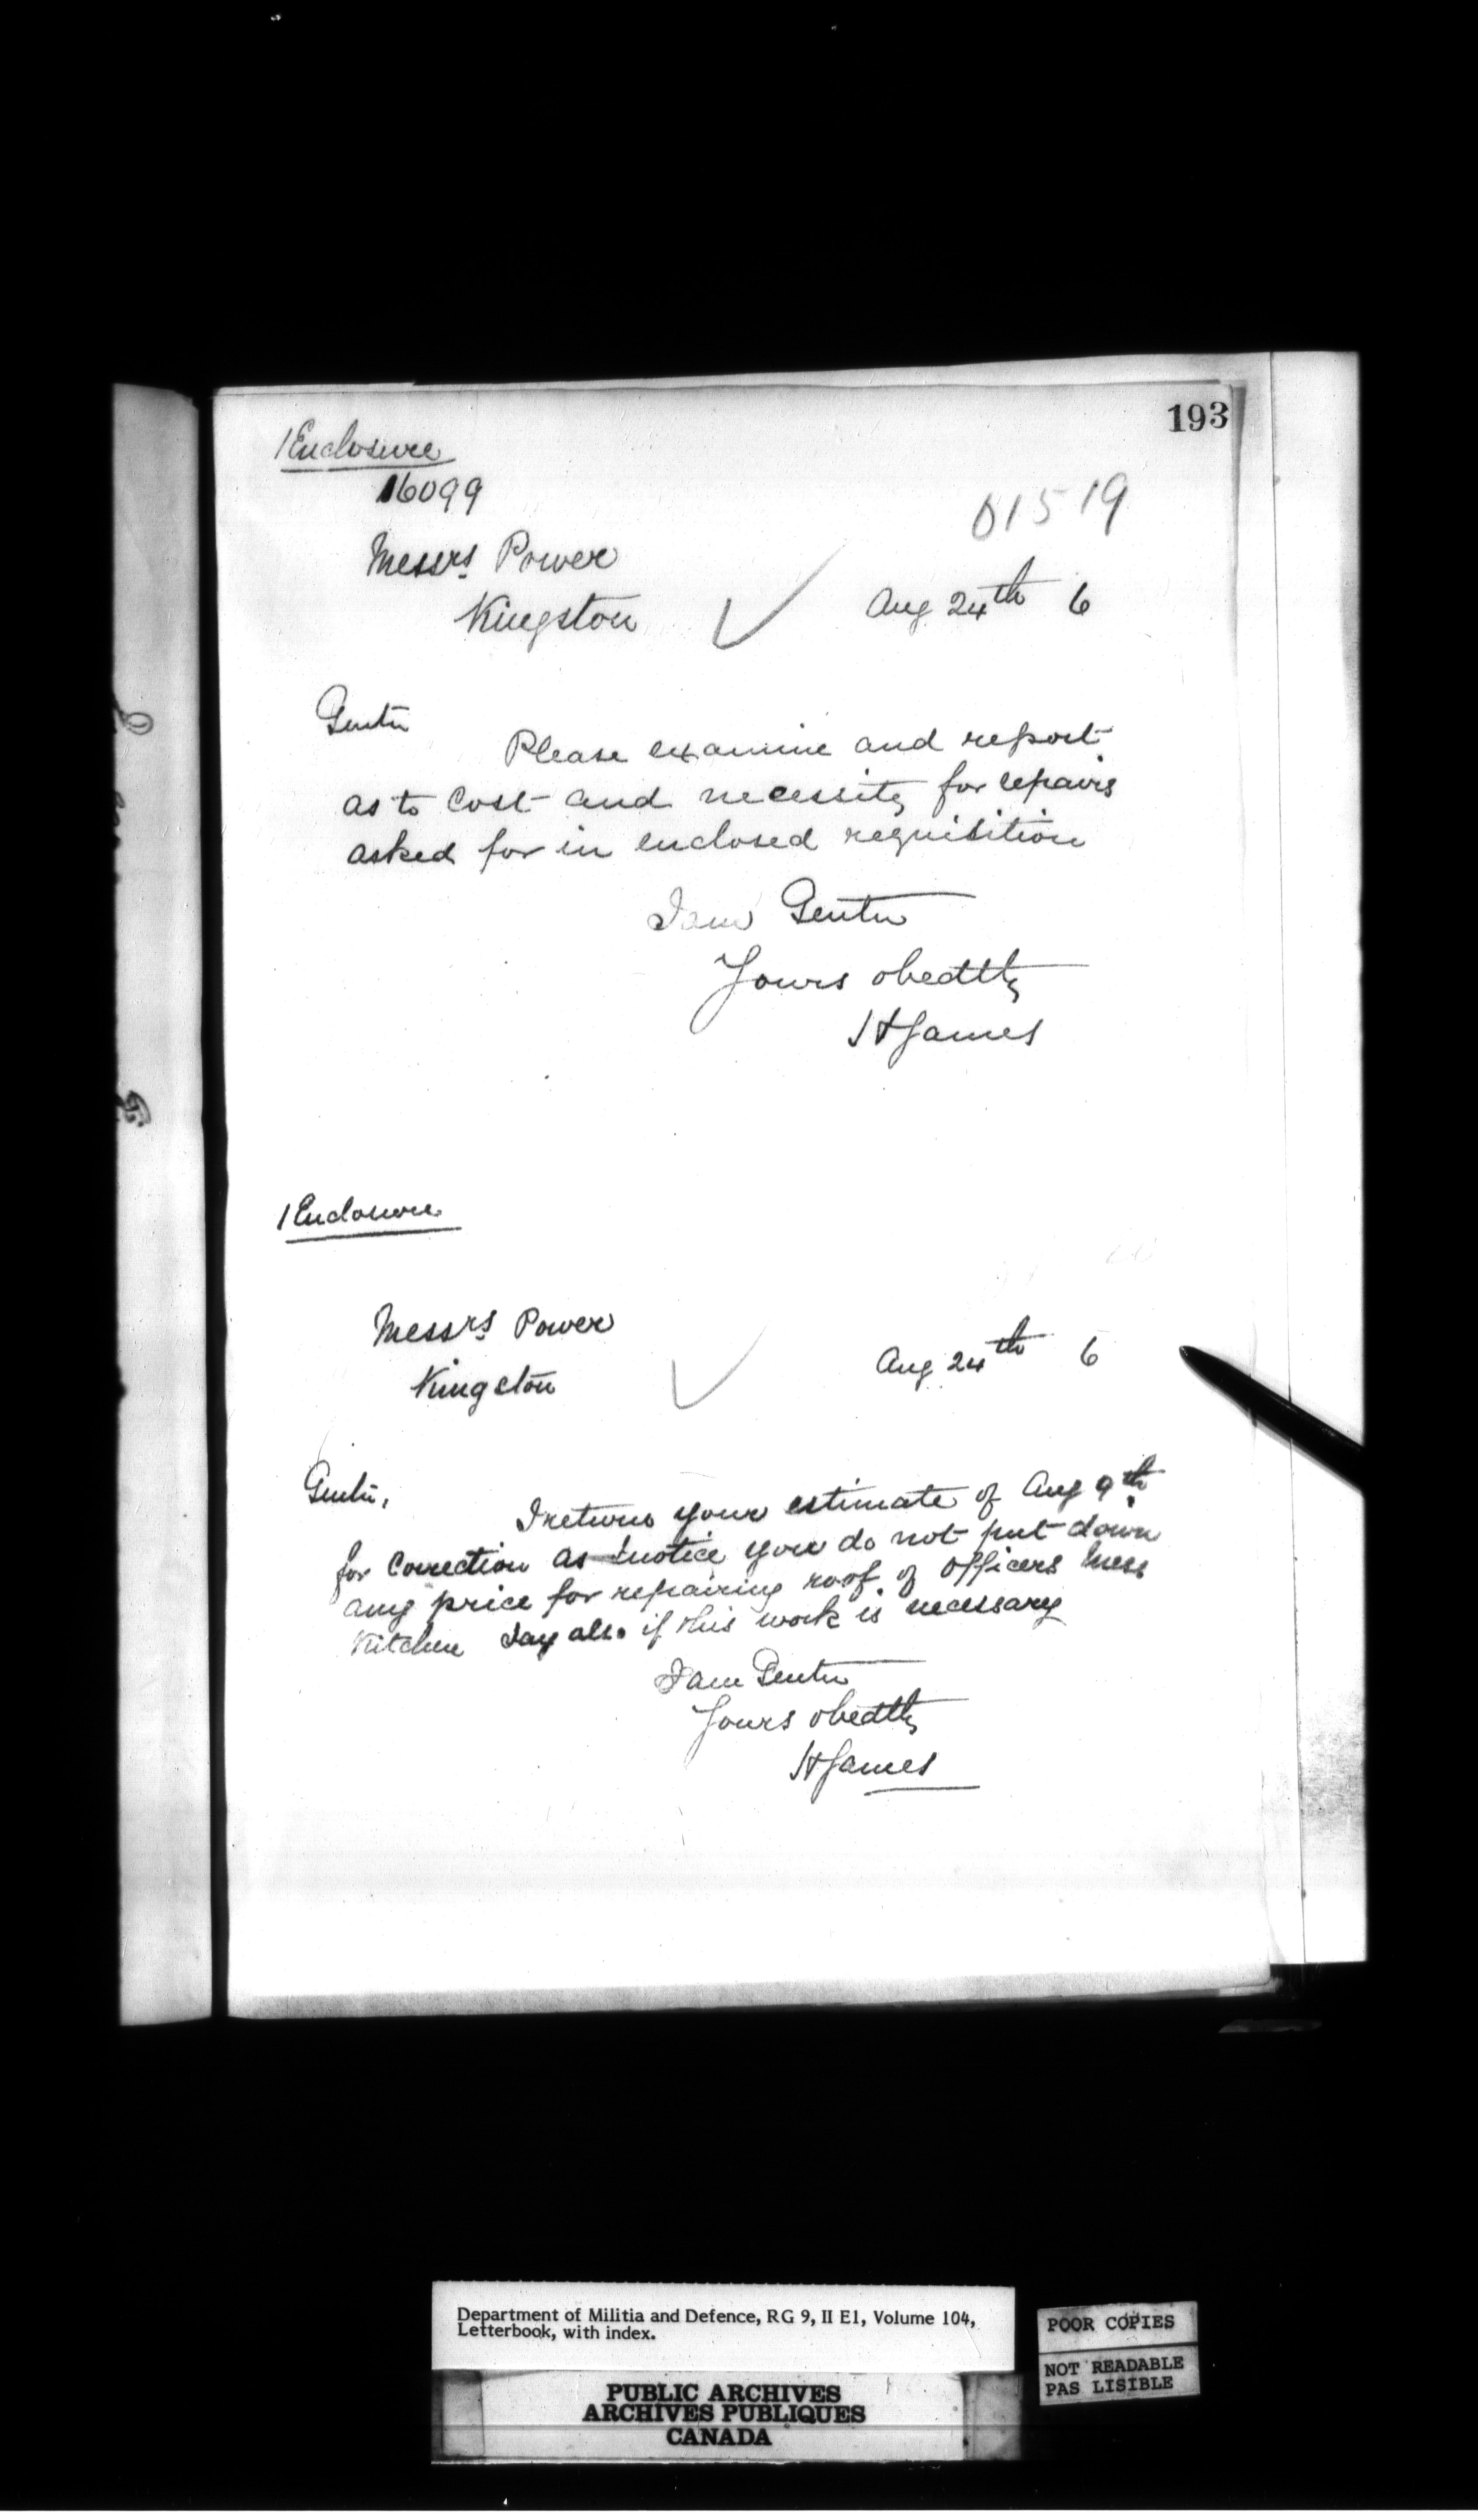 193
1 Enclosure
16099
01519
Messrs Power
Kingston
Aug 24th 6
Gentn
Please examine and report
as to cost and necessity for repairs
asked for in enclosed requisition
I am Gentn
Yours obedtly
H James
1 Enclosure
Messrs Power
Kingston
Aug 24th 6
Gentn,
I return your estimate of Aug 9th
for correction as I notice you do not put down
any price for repairing roof of Officers Mess
Kitchen Say also if this work is necessary
I am Gentn
Yours obedtly
H James
Department of Militia and Defence, RG 9, II E1, Volume 104,
Letterbook, with index.
POOR COPIES
NOT READABLE
PAS LISIBLE
PUBLIC ARCHIVES
ARCHIVES PUBLIQUES
CANADA